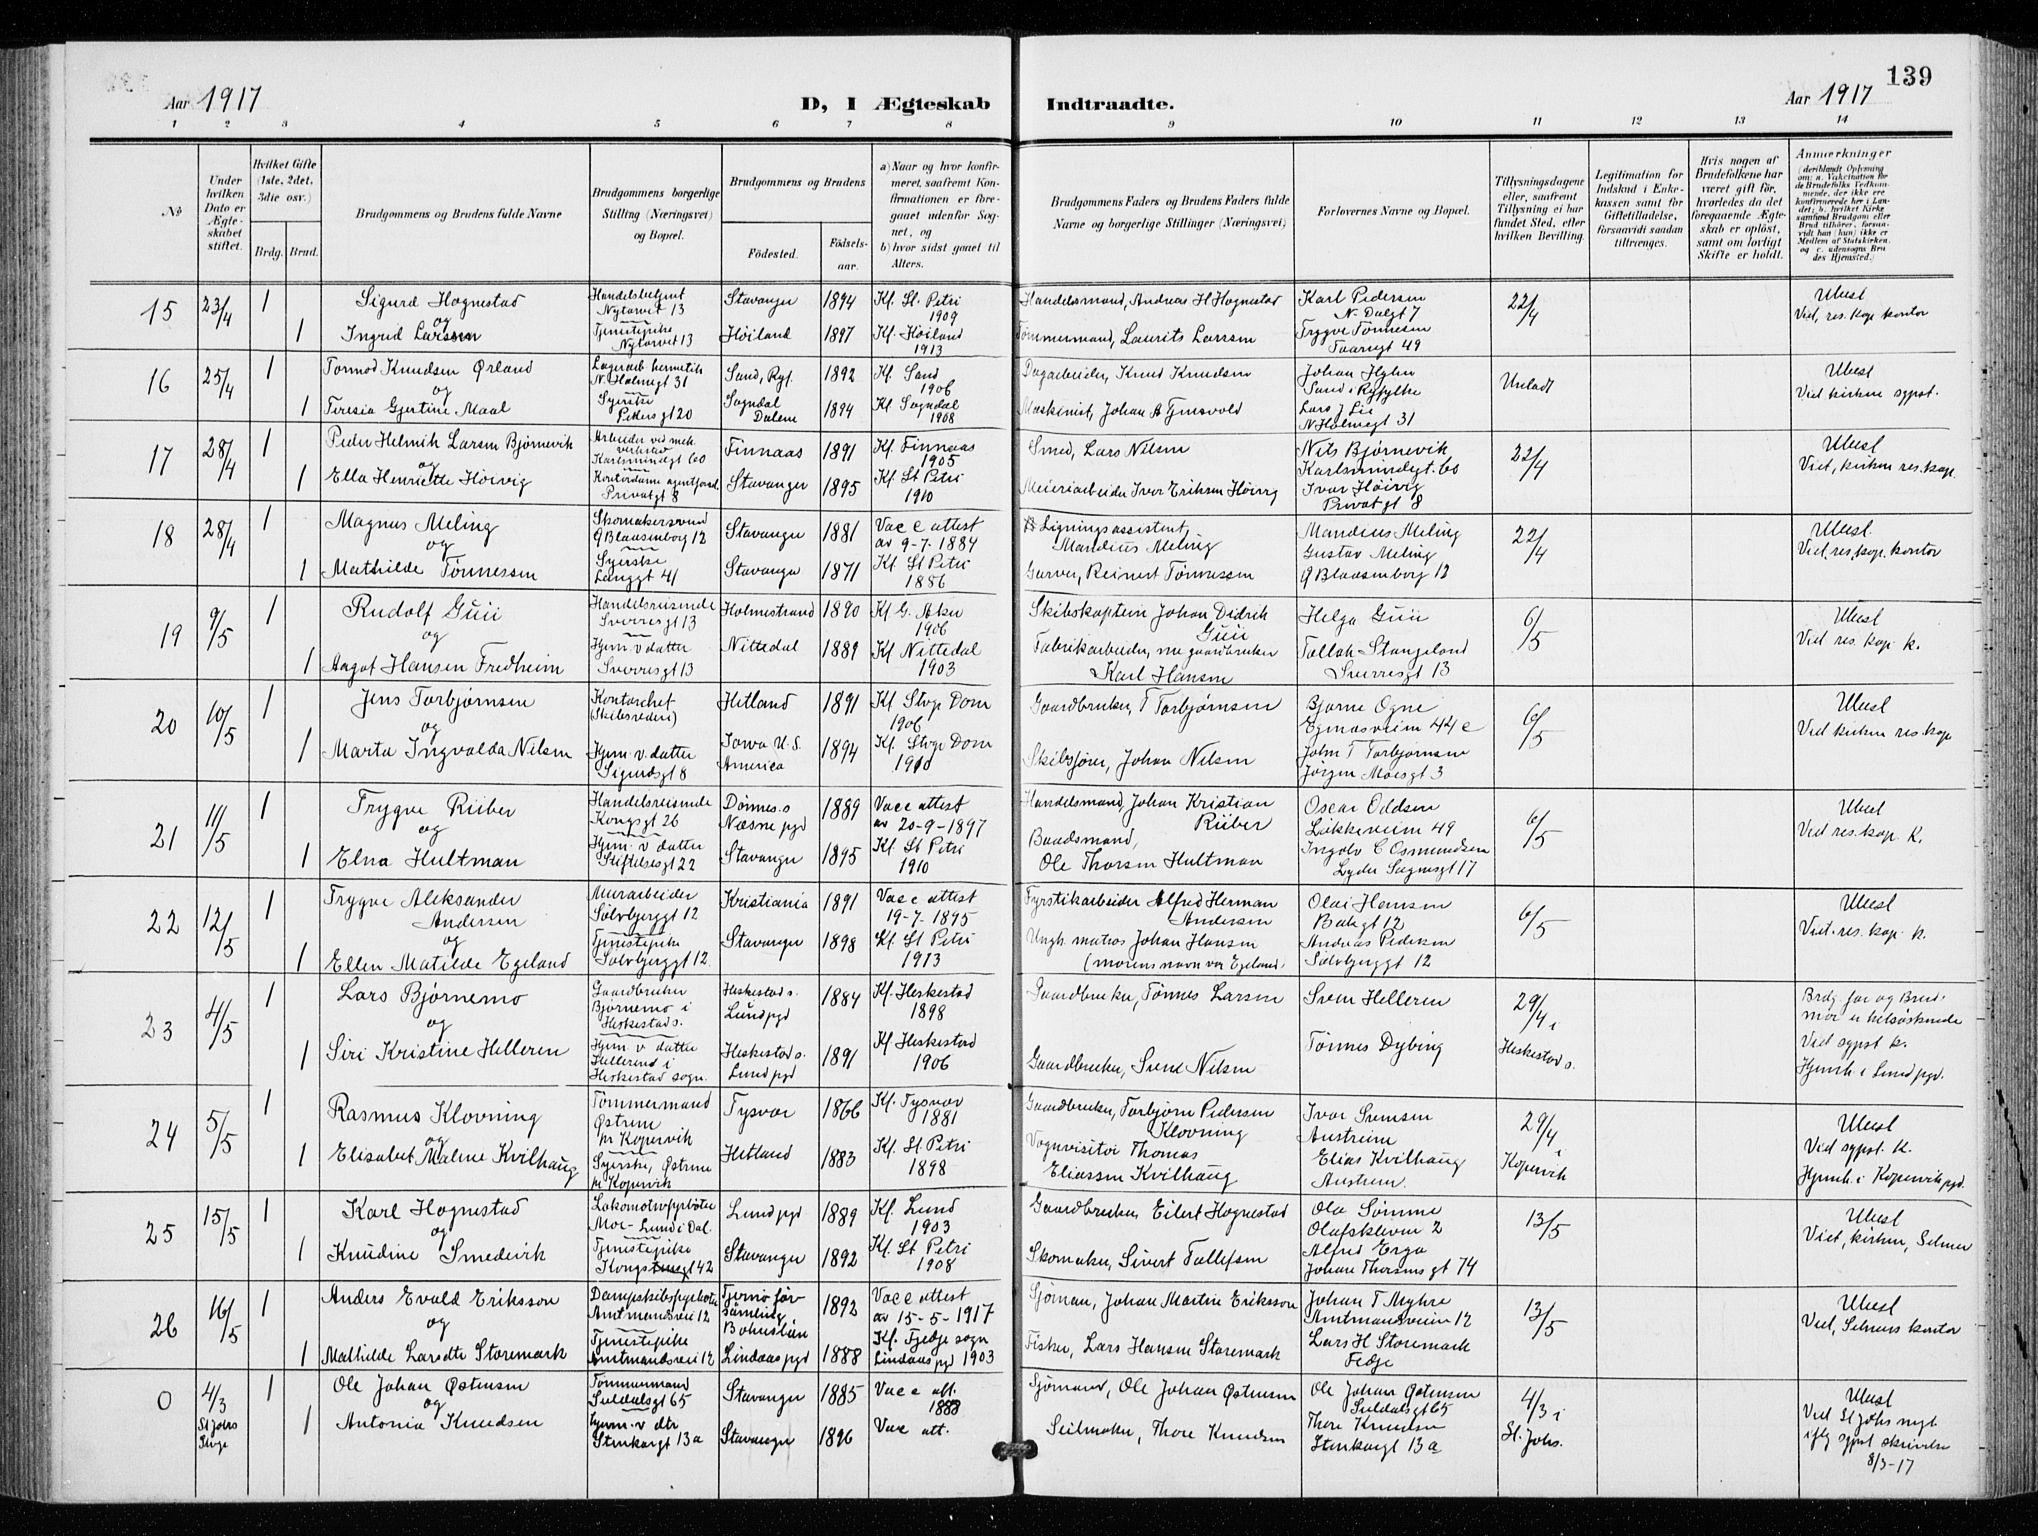 139
Aar 1917 D, I Ægteskab Indtraadte. Aar 1917
1 2 3 4 5 6 7 8 9 10 11 12 13 14
No
Under hvilken Dato er Ægteskabet stiftet.
Hvilket Gifte (1ste, 2det, 3die osv.)
Brdg. Brud.
Brudgommens og Brudens fulde Navne
Brudgommens borgerlige Stilling (Næringsvei) og Bopæl.
Brudgommens og Brudens
Födested.
Födsels-aar.
a) Naar og hvor konfirmeret, saafremt Konfirmationen er foregaaet udenfor Sognet, og
b) hvor sidst gaaet til Alters.
Brudgommens Faders og Brudens Faders fulde Navne og borgerlige Stillinger (Næringsvei)
Forlovernes Navne og Bopæl.
Tillysningsdagene eller, saafremt Tillysning ei har fundet Sted, efter hvilken Bevilling.
Legitimation for Indskud i Enkekassen samt for Giftetilladelse, forsaavidt saadan tiltrænges.
Hvis nogen af Brudefolkene har været gift før, hvorledes da det foregaaende Ægteskab er oplöst, samt om lovligt Skifte er holdt.
Anmærkninger
15 23/4 1 Sigurd Hognestad Handelsbetjent Nytorvet 13 Stavanger 1894 Kf. St. Petri 1909 Handelsmand, Andreas H Hognestad Karl Pedersen N. Dalgt 7 22/4 Ubesl
og
1 Ingrid Larssen Tjenestepike Nytorvet 13 Höiland 1897 Kf. Höiland 1913 Tømmermand, Laurits Larssen Trygve Tønnesen 49 Vid, res. kap. kontor
16 25/4 1 Tormod Knudsen Ørland N. Holmegt 31 Sand, Ryf. 1892 Kf. Sand 1906 Dagarbeider, Knud Knudsen Johan Sand i Ryfylke Ubesl
og
1 Teresia Gjertine Maal Syerske Pedersgt 20 Sogndal Dalene 1894 Kf Sogndal 1908 Maskinist, Johan A Lars J Lie N Holmegt 31 Vid kirken sypst.
17 28/4 1 Peder Helmik Larsen Bjørnevik Arbeider ved mek. verksted Karlsmindegt 60 Finnaas 1891 Kf. Finnaas 1905 Smed, Lars Nilsen Nils Bjørnevik Karlsmindegt. 60 22/4 Ubesl
og
1 Ella Henriette Høivig Kontordame Privatgt 8 Stavanger 1895 Kf. St Petri 1910 Meieriarbeider Ivar Eriksen Høivig Ivar Høivig Privatgt 8 Vid, kirken res. kap.
18 28/4 1 Magnus Meling Skomakersvend Ø Blaasenborg 12 Stavanger 1881 Vacc attest av 9-7-1884 Ligningsassistent, Mandius Meling Mandius Meling 22/4 Ubesl.
og
1 Mathilde Tønnessen Syerske Langgt 41 Stavanger 1871 Kf St Petri 1886 Garver, Reinert Tønnessen Gustav Meling Ø Blaasenborg 12 Vid, res. kap. kontor
19 9/5 1 Rudolf Guii Handelsreisende Sverresgt 13 Holmestrand 1890 Kf G. Aker 1906 Skibskaptein Johan Didrik Guii Helga Guii 6/5 Ubesl
og
1 Aagot Hansen Fredheim Hjem. v datter Sverresgt 13 Nittedal 1889 Kf Nittedal 1903 Fabrikarbeider, nu gaardbruker Karl Hansen Tallak Stangeland Sverresgt 13 Vid res. kap. k.
20 10/5 1 Jens Torbjørnsen Kontorchef (Skibsrederi) Hetland 1891 Kf Stvgr Dom 1906 Gaardbruker, T Torbjørnsen Bjarne Ogne Egenæsveien 44 c 6/5 Ubesl
og
1 Marta Ingvalda Nilsen Hjem. v. datter Sigurdsgt 8 Iowa U.S. America 1894 Kf. Stvgr Dom 1910 Skibsfører, Johan Nilsen John T Torbjørnsen Jörgen Moesgt 3 Vid kirken res. kap
21 11/5 1 Trygve Riiber Handelsreisende Kongsgt 26 Dönnes s Næsne pgd 1889 Vacc attest av 20-9-1897 Handelsmand, Johan Kristian Riiber Oscar Oddsen Løkkeveien 49 6/5 Ubesl
og
1 Elna Hultman Hjem. v datter Stiftelsesgt 22 Stavanger 1895 Kf St Petri 1910 Baadsmand, Ole Thorsen Hultman Ingolv C Osmundsen Lyder Sagensgt 17 Vid res. kap. k.
22 12/5 1 Trygve Aleksander Andersen Murarbeider Sölvberggt 12 Kristiania 1891 Vacc attest 19-7-1895 Fyrstikarbeider Alfred Herman Andersen Olai Hansen Bakgt 12 6/5 Ubesl
og
1 Ellen Matilde Egeland Tjenestepike Sølvberggt 12. Stavanger 1898 Kf. St Petri 1913 Ungk. matros Johan Hansen (morens navn var Egeland. Andreas Pedersen Sølvberggt 12 Vid. res. kap. k.
23 4/5 1 Lars Bjørnemo Gaardbruker Bjørnemo i Heskestad s. Heskestad s. Lund pgd 1884 Kf. Heskestad 1898 Gaardbruker, Tønnes Larsen Sven Helleren 29/4 i Heskestad s. Brdg. far og Brud. mor er helsøskende
og
1 Siri Kristine Helleren Hjem v datter Helleren i Heskestad sogn. Heskestad s. Lund pgd 1891 Kf Heskestad 1906 Gaardbruker, Svend Nilsen Tönnes Dybing Vid sypst k. Hjemh. i Lund pgd.
24 5/5 1 Rasmus Klovning Tømmermand Østrem pr Kopervik Tysvær 1866 Kf. Tysvær 1881 Gaardbruker, Torbjørn Pedersen Klovning Ivar Svensen Austreim 29/4 i Kopervik Ubesl
og
1 Elisabet Malene Kvilhaug Syerske, Østrem pr Kopervik Hetland 1883 Kf. St Petri 1898 Vognvisitør Thomas Eliassen Kvilhaug Elias Kvilhaug Austrem. Vid sypst. k. Hjemh. i Kopervik pgd.
25 15/5 1 Karl Hognestad Lokomotivfyrbøter Moi - Lund i Dal. Lund pgd 1889 Kf. Lund 1903 Gaardbruker, Eilert Hognestad Ola Sömme Olafskleven 2 13/5 Ubesl
og
1 Knudine Smedevik Tjenestepike Kongsgt 42 Stavanger 1892 Kf. St Petri 1908 Skomaker, Sivert Tollefsen Alfred Erga Johan Thorsensgt 74 Vid, kirken, Selmer
26 16/5 1 Anders Evald Eriksson Dampskibsfyrbøter Amtmandsvei 12 Tjernö församling Bohuslän 1892 Vacc attest av 15-5-1917 Sjøman, Johan Martin Eriksson Johan T Myhre Amtmandsveien 12 13/5 Ubesl
og
1 Mathilde Larsdte Storemark Tjenestepike Amtmandsveien 12 Lindaas pgd 1888 Kf. Fedje sogn Lindaas pgd 1903 Fisker, Lars Hansen Storemark Lars H Storemark Fedje Vid, Selmers kontor
0 4/3 St Johs Stvgr 1 Ole Johan Østensen Tømmermand Suldalsgt 65 Stavanger 1885 Vacc att. 1888 Sjømand, Ole Johan Østensen Ole Johan Østensen Suldalsgt 65 4/3 i St. Johs. Ubesl
og
1 Antonia Knudsen hjem. v dtr Stenkargt 13a Stavanger 1896 Vac att. Seilmaker, Thore Knudsen Thore Knudsen Stenkargt 13a Vid St Johs mgt iflg sypst skrivelse 8/3-17